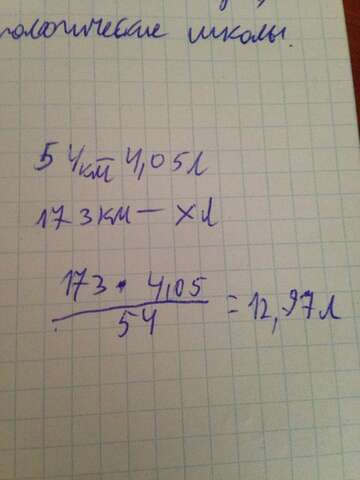 логические школы.
54км 4,05л
173км — хл
173 · 4,05
54
= 12,97л